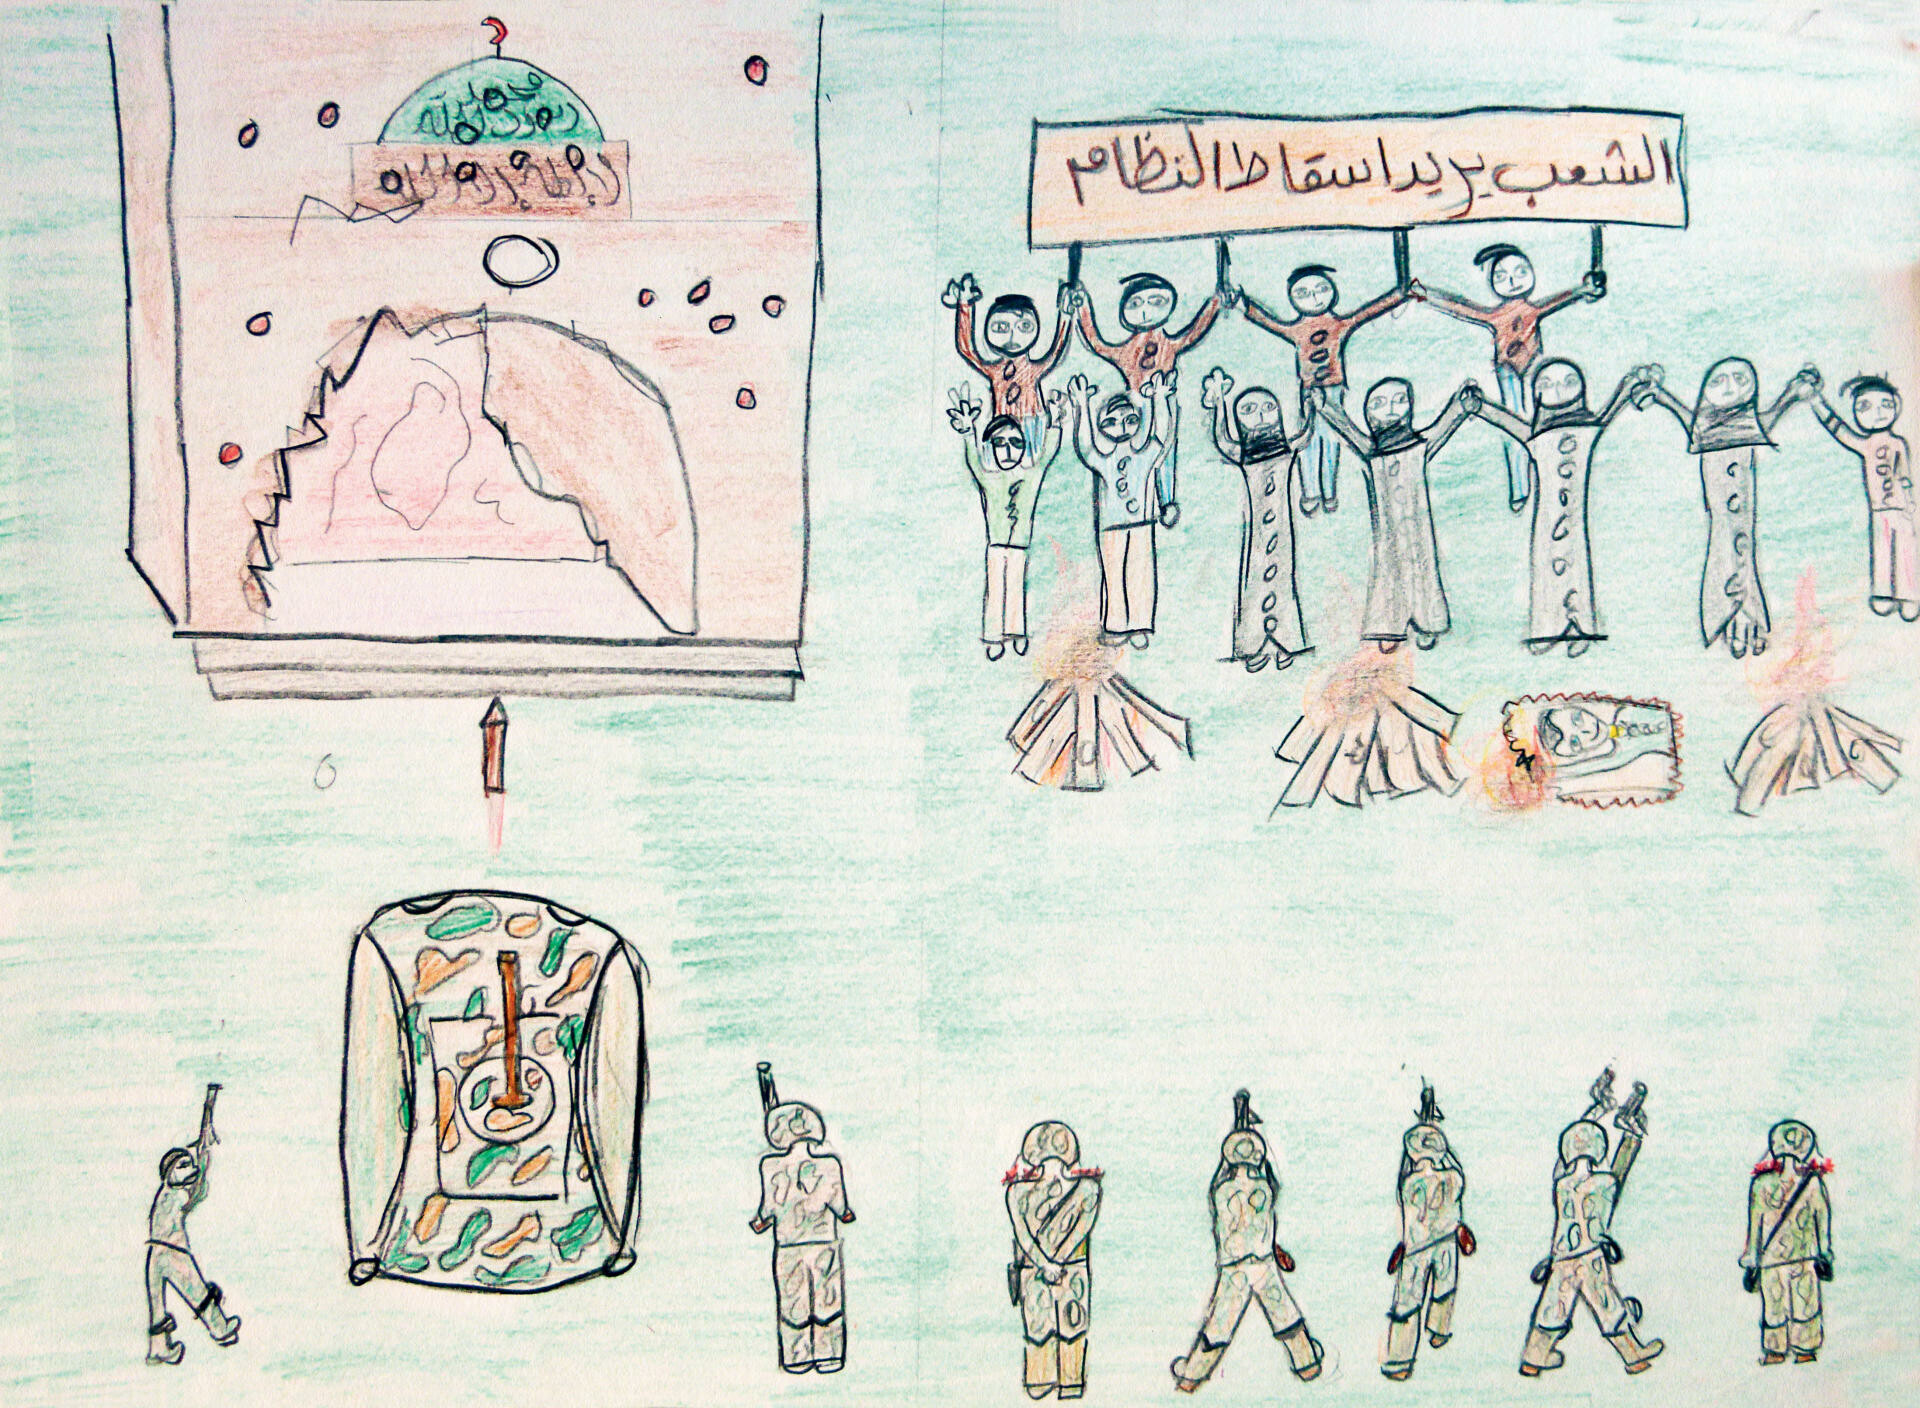 محمد
رسول الله
لا إله إلا الله
الشعب يريد اسقاط النظام